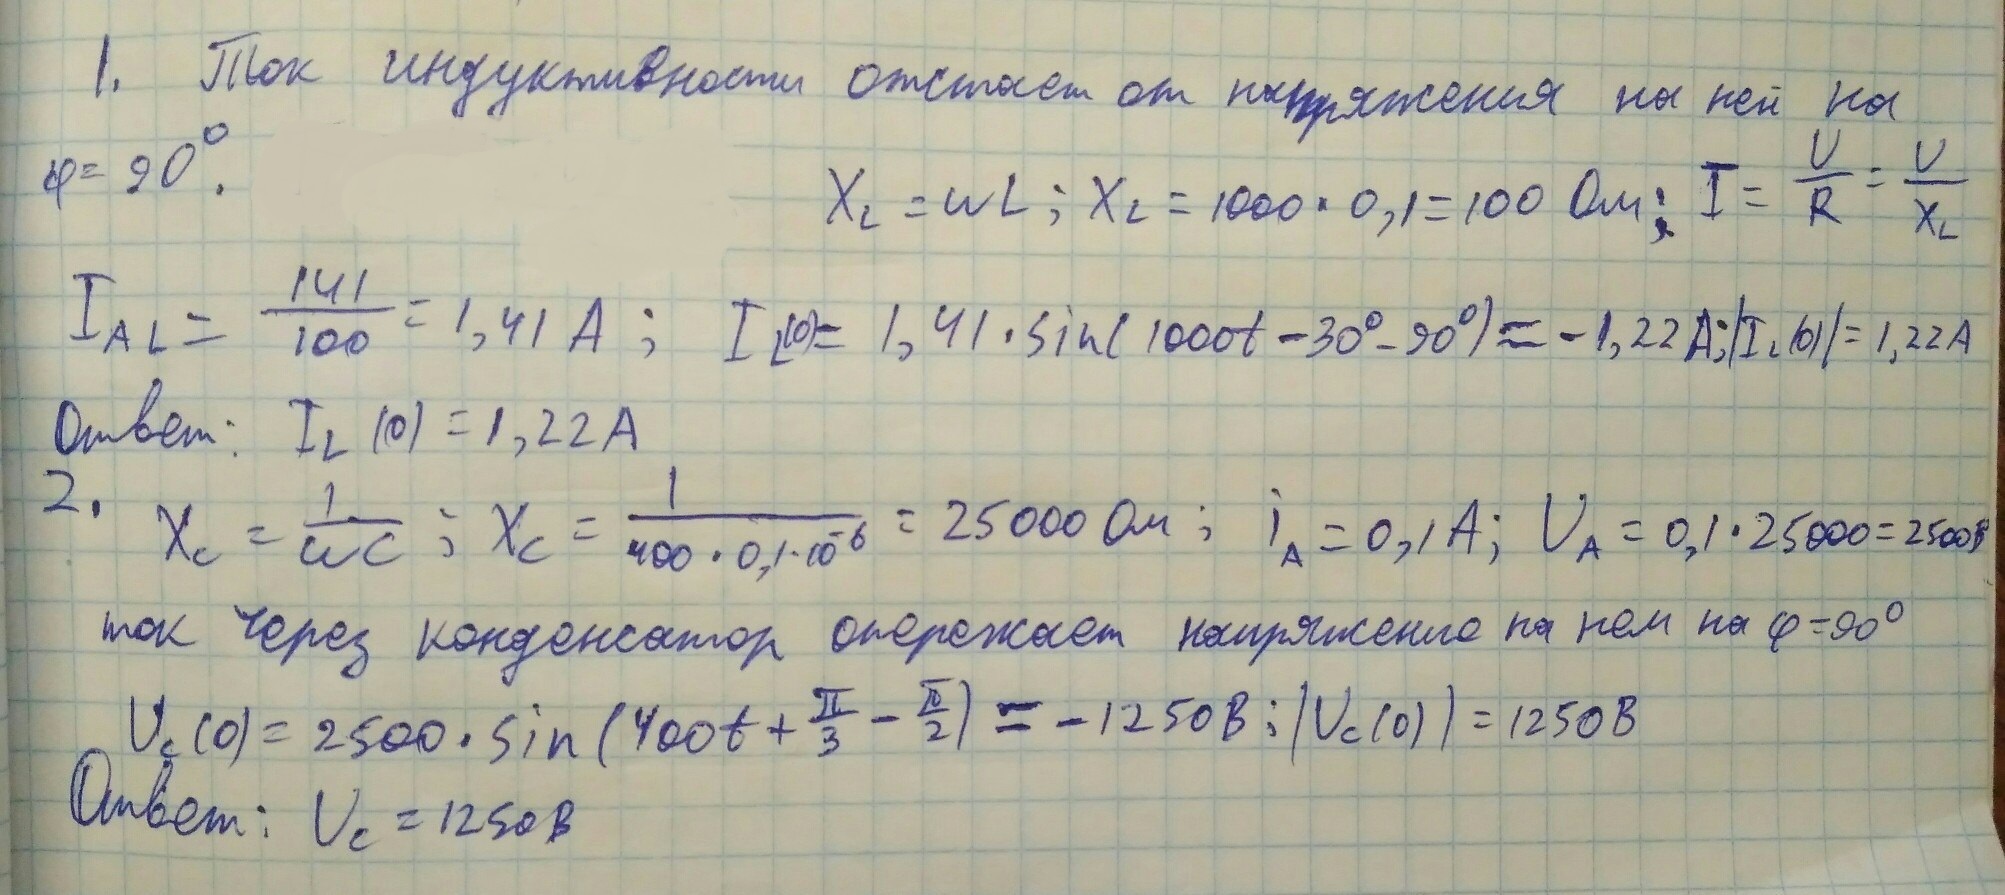 1. Ток индуктивности отстает от напряжения на ней на
φ = 90°.
X_L = ωL; X_L = 1000 · 0,1 = 100 Ом; I = U/R = U/X_L
I_AL = 141/100 = 1,41 А; I_L(0) = 1,41 · sin(1000t − 30° − 90°) = −1,22 А; |I_L(0)| = 1,22 А
Ответ: I_L (0) = 1,22 А
2. X_C = 1/ωC; X_C = 1/(400 · 0,1 · 10^-6) = 25000 Ом; i_A = 0,1 А; U_A = 0,1 · 25000 = 2500 В
ток через конденсатор опережает напряжение на нем на φ = 90°
U_C (0) = 2500 · sin (400t + π/3 − π/2) = −1250 В; |U_C (0)| = 1250 В
Ответ: U_C = 1250 В